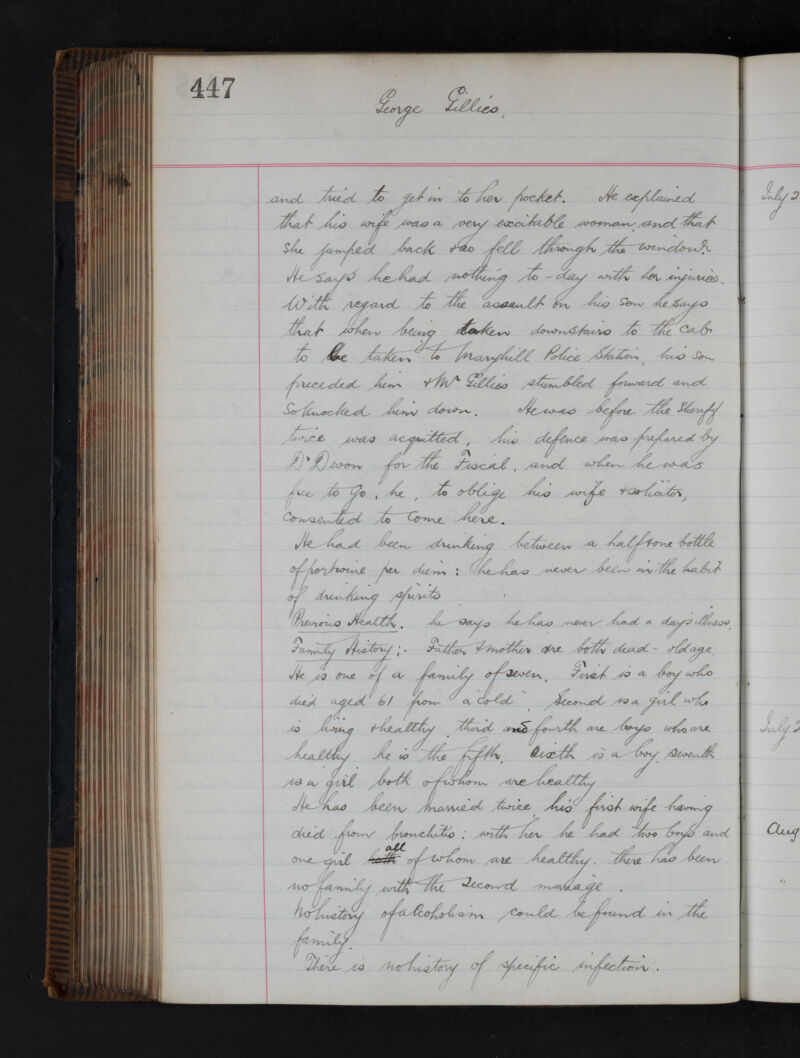 447
George Gillies.
and tried to get in to her pocket. He explained
that his wife was a very excitable woman, and that
she jumped back & so fell through the window.
He says he had nothing to-day with her injuries.
With regard to the assault on his son he says
that when being taken downstairs to the cab
to be taken to Maryhill Police Station, his son
preceded him & Mr Gillies stumbled forward and
so knocked him down. He was before the Sheriff
twice was acquitted, his defence was prepared by
Dr Devon for the Fiscal, and when he was
free to go, he, to oblige his wife & solicitor,
consented to come here.
He had been drinking between a half & one bottle
of portwine per diem: he has never been in the habit
of drinking spirits
Previous Health. he says he has never had a day's illness.
Family History:- Father & mother are both dead - old age
He is one of a family of seven. First is a boy who
died aged 61 from "a cold". Second is a girl who
is living & healthy, third and fourth are boys who are
healthy he is the fifth, sixth is a boy, seventh
is a girl both of whom are healthy
He has been married twice, his first wife having
died from bronchitis: with her he had two boys and
one girl both all of whom are healthy. there has been
no family with the second marriage.
No history of alcoholism could be found in the
family.
There is no history of specific infection.
July 2
July 2
Aug
"